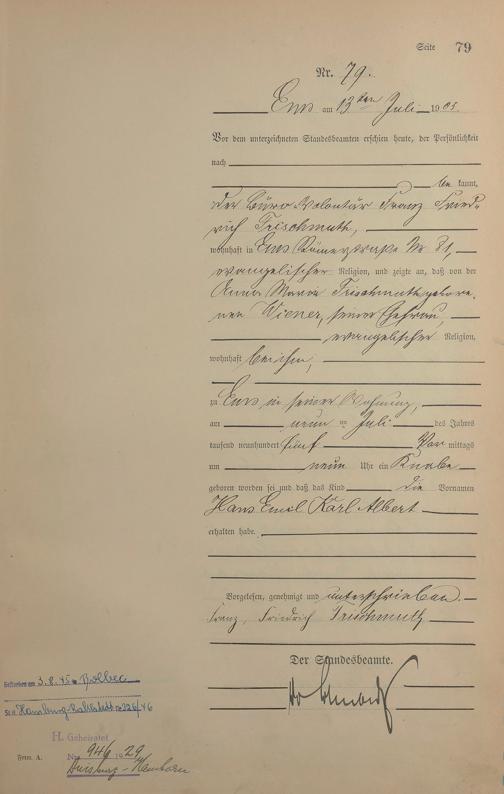 Seite 79
Nr. 79.
Ems am 13ten Juli 1905.
Vor dem unterzeichneten Standesbeamten erschien heute, der Persönlichkeit
nach
be kannt,
der Büro-Volontär Franz Fried-
rich Frischmuth,
wohnhaft in Ems Römerstraße Nr 81,
evangelischer Religion, und zeigte an, daß von der
Anna Maria Frischmuth gebore-
nen Wiener, seiner Ehefrau,
evangelischer Religion,
wohnhaft bei ihm,
zu Ems in seiner Wohnung,
am neun ten Juli des Jahres
tausend neunhundert fünf Vor mittags
um neun Uhr ein Knabe
geboren worden sei und daß das Kind die Vornamen
Hans Emil Karl Albert
erhalten habe.
Vorgelesen, genehmigt und unterschrieben.
Franz, Friedrich Frischmuth
Der Standesbeamte.
Gestorben am 3.2.45 Bolbec
St.A. Hamburg-Rahlstedt 226/46
H. Geheiratet
Nr. 946 1929
Duisburg-Hamborn
Form. A.